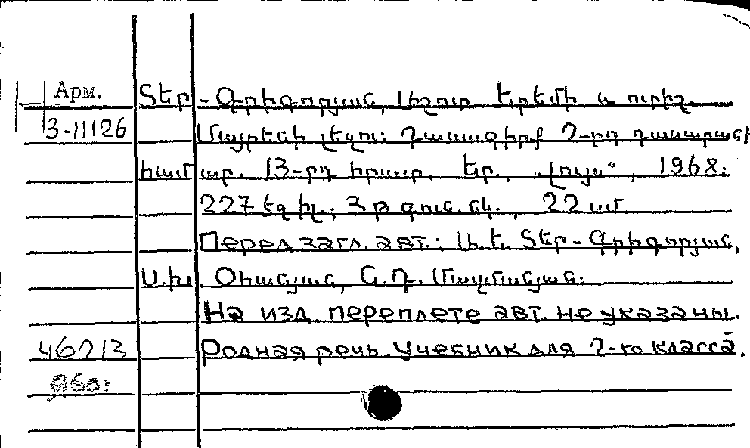 Арм. Տեր-Գրիգորյան, Լիշուր Երեմի և ուրիշ.
3-11126 Մայրենի լեզու: Դասագիրք 2-րդ դասարանի
համար. 13-րդ հրատ. Եր., „Լույս“, 1968:
227 էջ իլ.; 3 թ գուն. նկ., 22 սմ.
Перед загл. авт.: Լ. Ե. Տեր-Գրիգորյան,
Ս. Խ. Օհանյան, Հ. Դ.
На изд. переплете авт. не указаны.
46713 Родная речь. Учебник для 2-го класса.